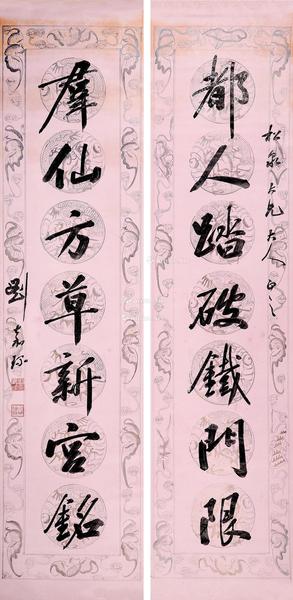 松泉大兄大人正之
都人踏破鐵門限
羣仙方草新宮銘
劉嘉琛